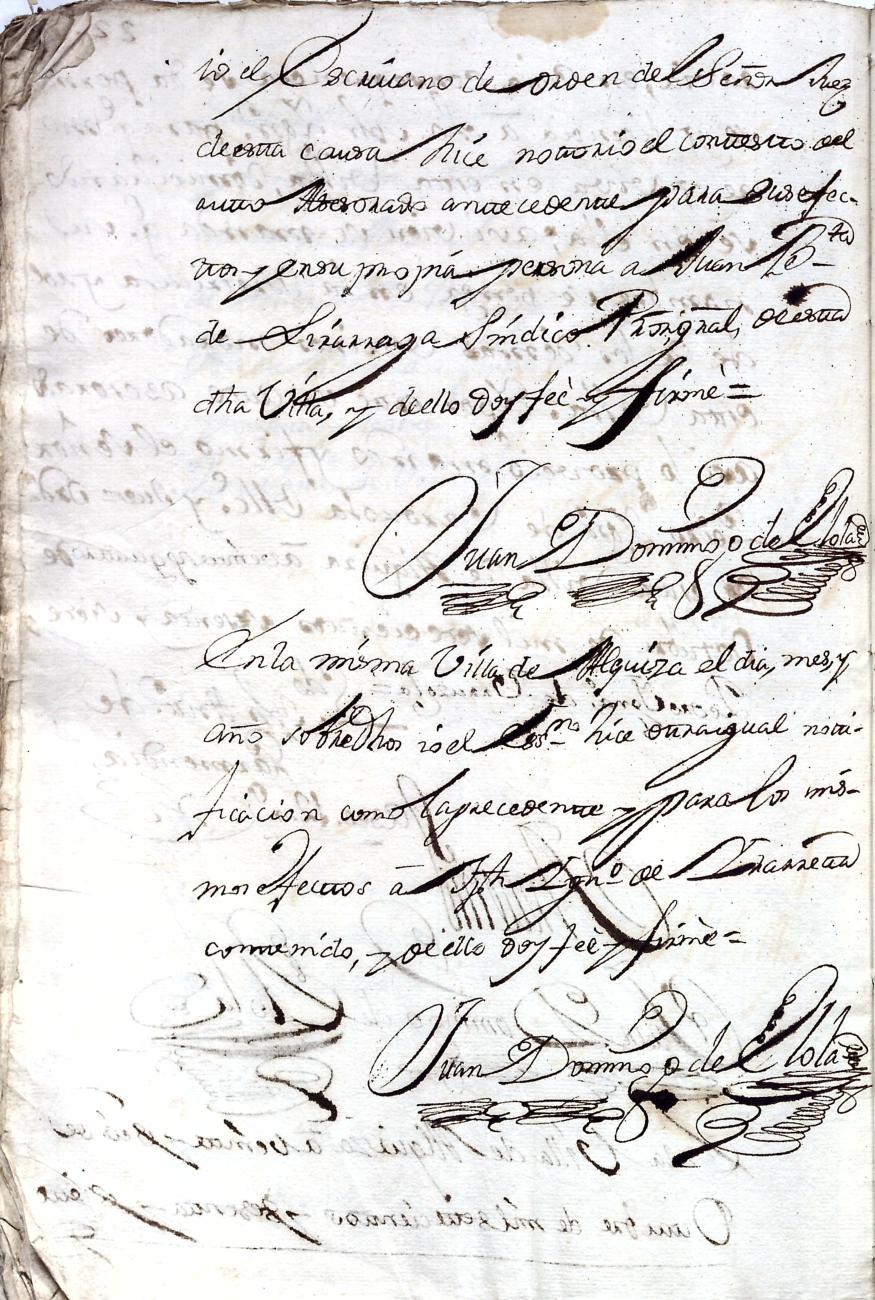 io el Escriuano de orden del Señor Juez
de esta causa hice nottorio el contesto del
autto Asesorado antecedente para sus efec-
ttos y en su propria persona a Juan Bap.ta
de Lizarraga Síndico Pror. gral, de esta
dha Villa, y de ello doy feè y firmè =
Juan Domingo de Elola
En la misma Villa de Alquiza el dia, mes, y
año sobredhos io el Essno hice otra igual noti-
ficacion como la precedente y para los mis-
mos efectos â Jph Ign.o de Irarreta
contenido, y de ello doy feè y firmè =
Juan Domingo de Elola